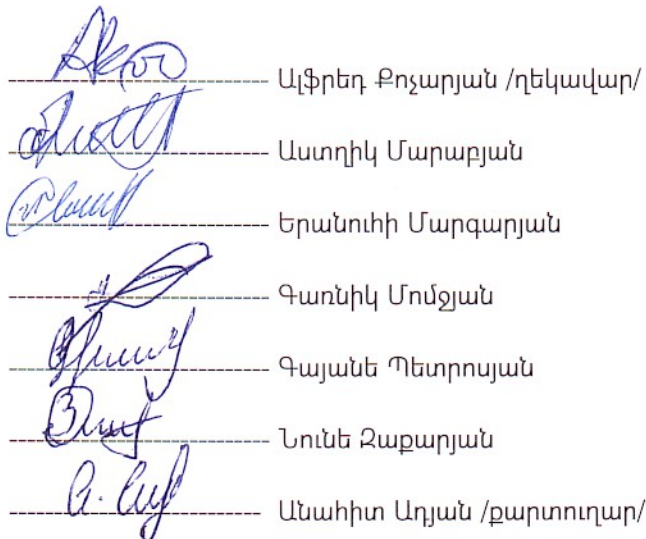 Ալֆրեդ Քոչարյան /ղեկավար/
Աստղիկ Մարաբյան
Երանուհի Մարգարյան
Գառնիկ Մոմջյան
Գայանե Պետրոսյան
Նունե Զաքարյան
Անահիտ Աղյան /քարտուղար/